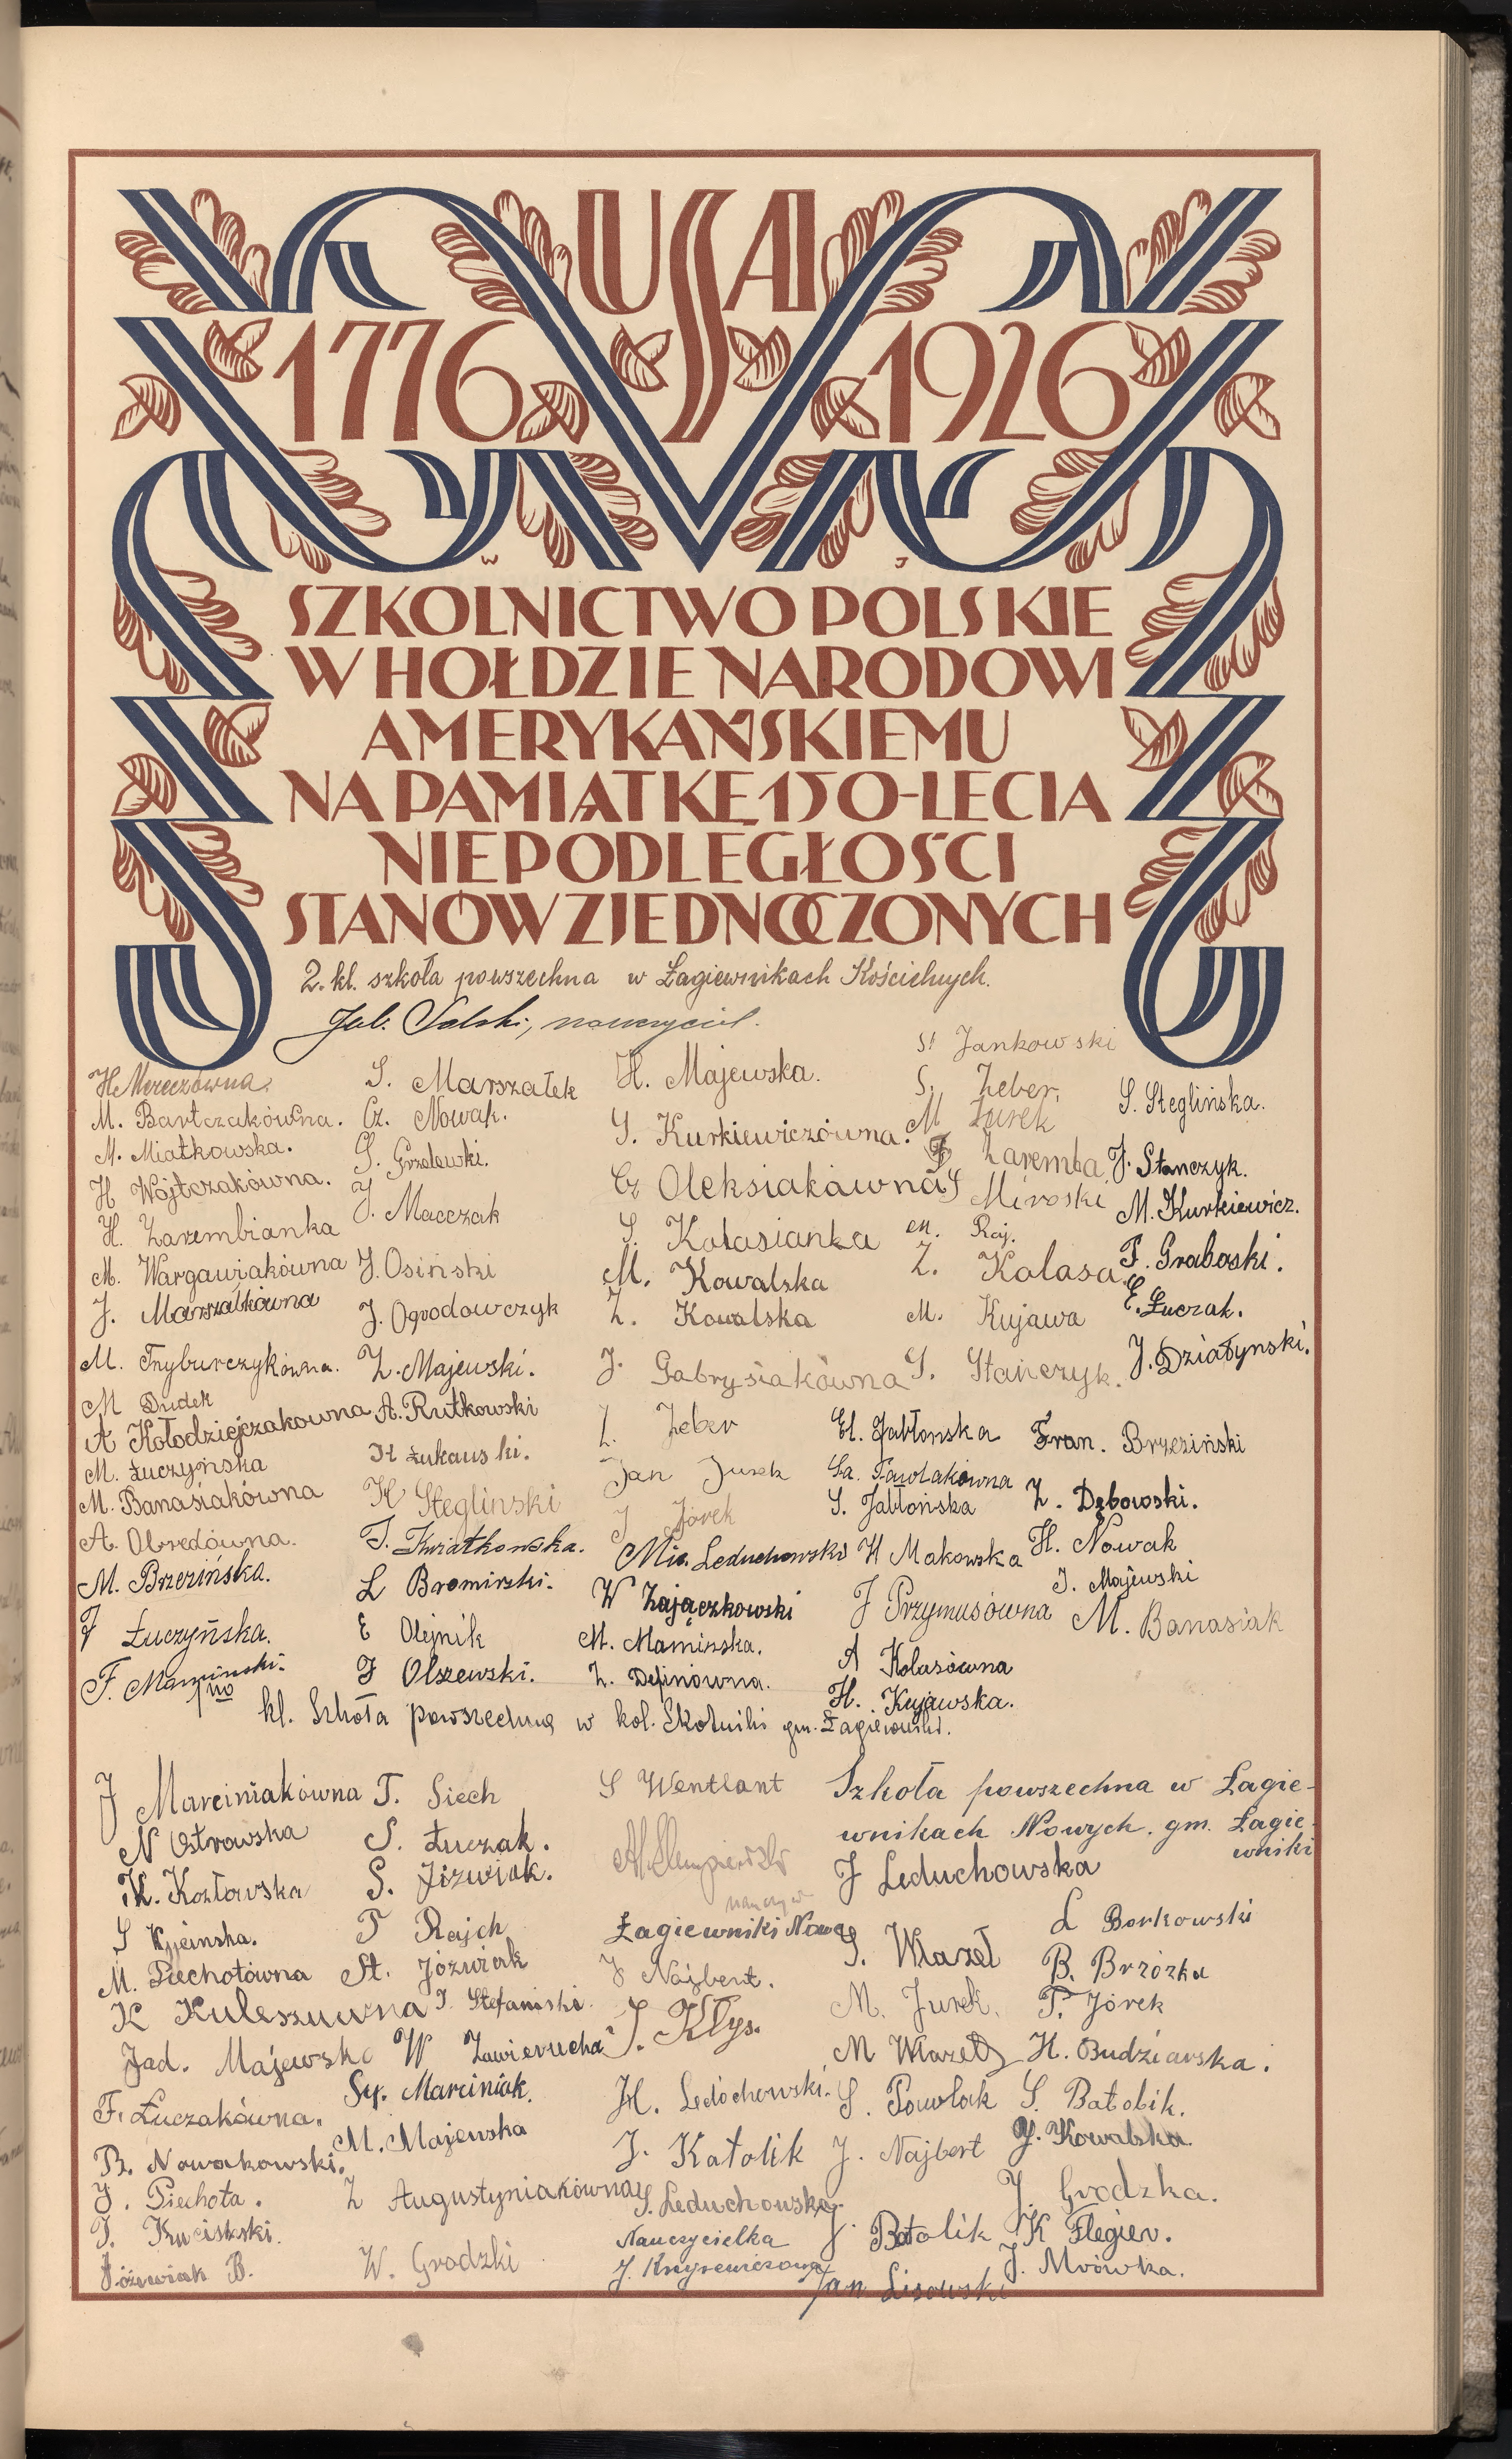 USA
1776 1926
W J
SZKOLNICTWO POLSKIE
W HOŁDZIE NARODOWI
AMERYKAŃSKIEMU
NA PAMIĄTKĘ 150-LECIA
NIEPODLEGŁOŚCI
STANÓW ZJEDNOCZONYCH
2. kl. szkoła powszechna w Łagiewnikach Kościelnych.
Jul. Solski, nauczyciel.
H. Mereczówna.
M. Bartczakówna.
M. Miatkowska.
H Wojtczakówna.
H. Zarembianka
M. Wargawiakówna
J. Marszałkówna
M. Tryburczykówna.
M Dudek
A Kołodziejczakowna
M. Łuczyńska
M. Banasiakówna
A. Obredówna.
M. Brzezińska.
J Łuczyńska.
F. Mamiński.
S. Marszałek
Cz. Nowak.
S. Grzelewski.
J. Macczak
J. Osiński
J. Ogrodowczyk
Z. Majewski.
A. Rutkowski
H Łukauski.
K Stegliński
J. Kwiatkowska.
L Bromirski.
E Olejnik
J Olszewski.
H. Majewska.
S. Kurkiewiczówna.
Cz Oleksiakówna
S. Kolasianka
M. Kowalska
Z. Kowalska
J. Gabrysiakówna
Z. Zeber
Jan Jurek
J Jórek
Mie. Leduchowski
W Zajączkowski
M. Mamińska.
Z. Depinówna.
St Jankowski
S. Zeber.
M Jurek
Zaremba
S Miroski
M. Raj.
Z. Kolasa
M. Kujawa
S. Stańczyk.
El. Jabłonska
Sa. Pawlakówna
S. Jabłońska
H Makowska
J Przymusówna
A Kolasówna
H. Kujawska.
S. Steglińska.
J. Stanczyk.
M. Kurkiewicz.
F. Graboski.
E. Łuczak.
J. Działynski.
Fran. Brzeziński
Z. Dębowski.
H. Nowak
J. Majewski
M. Banasiak
kl. Szkoła powszechna w kol. Skotniki gm. Łagiewniki.
J Marciniakówna
N Ostrowska
K. Kozłowska
S Kpinska.
M. Piechotówna
K Kuleszuwna
Jad. Majewska
F. Łuczakówna.
B. Nowakowski.
J. Piechota.
Jóźwiak B.
T. Siech
S. Łuczak.
S. Jóźwiak.
T Rajch
St. Jóźwiak
J. Stefański.
W Zawierucha
Sy. Marciniak.
M. Majewska
Z Augustyniakówna
W. Grodzki
S Wentlant
Łagiewniki Nowe
J Najbert.
J. Kłys.
H. Ledóchowski.
J. Katolik
S. Leduchowska
Nauczycielka
Szkoła powszechna w Łagie-
wnikach Nowych. gm. Łagie-
wniki
J Leduchowska
S. Wlazeł
M. Jurek.
M Wlazeł
S. Powlak
J. Najbert
J. Batolik
Jan Lisowski
L Borkowski
B. Brzózka
T. Jórek
H. Budziarska.
S. Batolik.
J. Kowalska.
J. Grodzka.
K Flegier.
J. Mrówka.